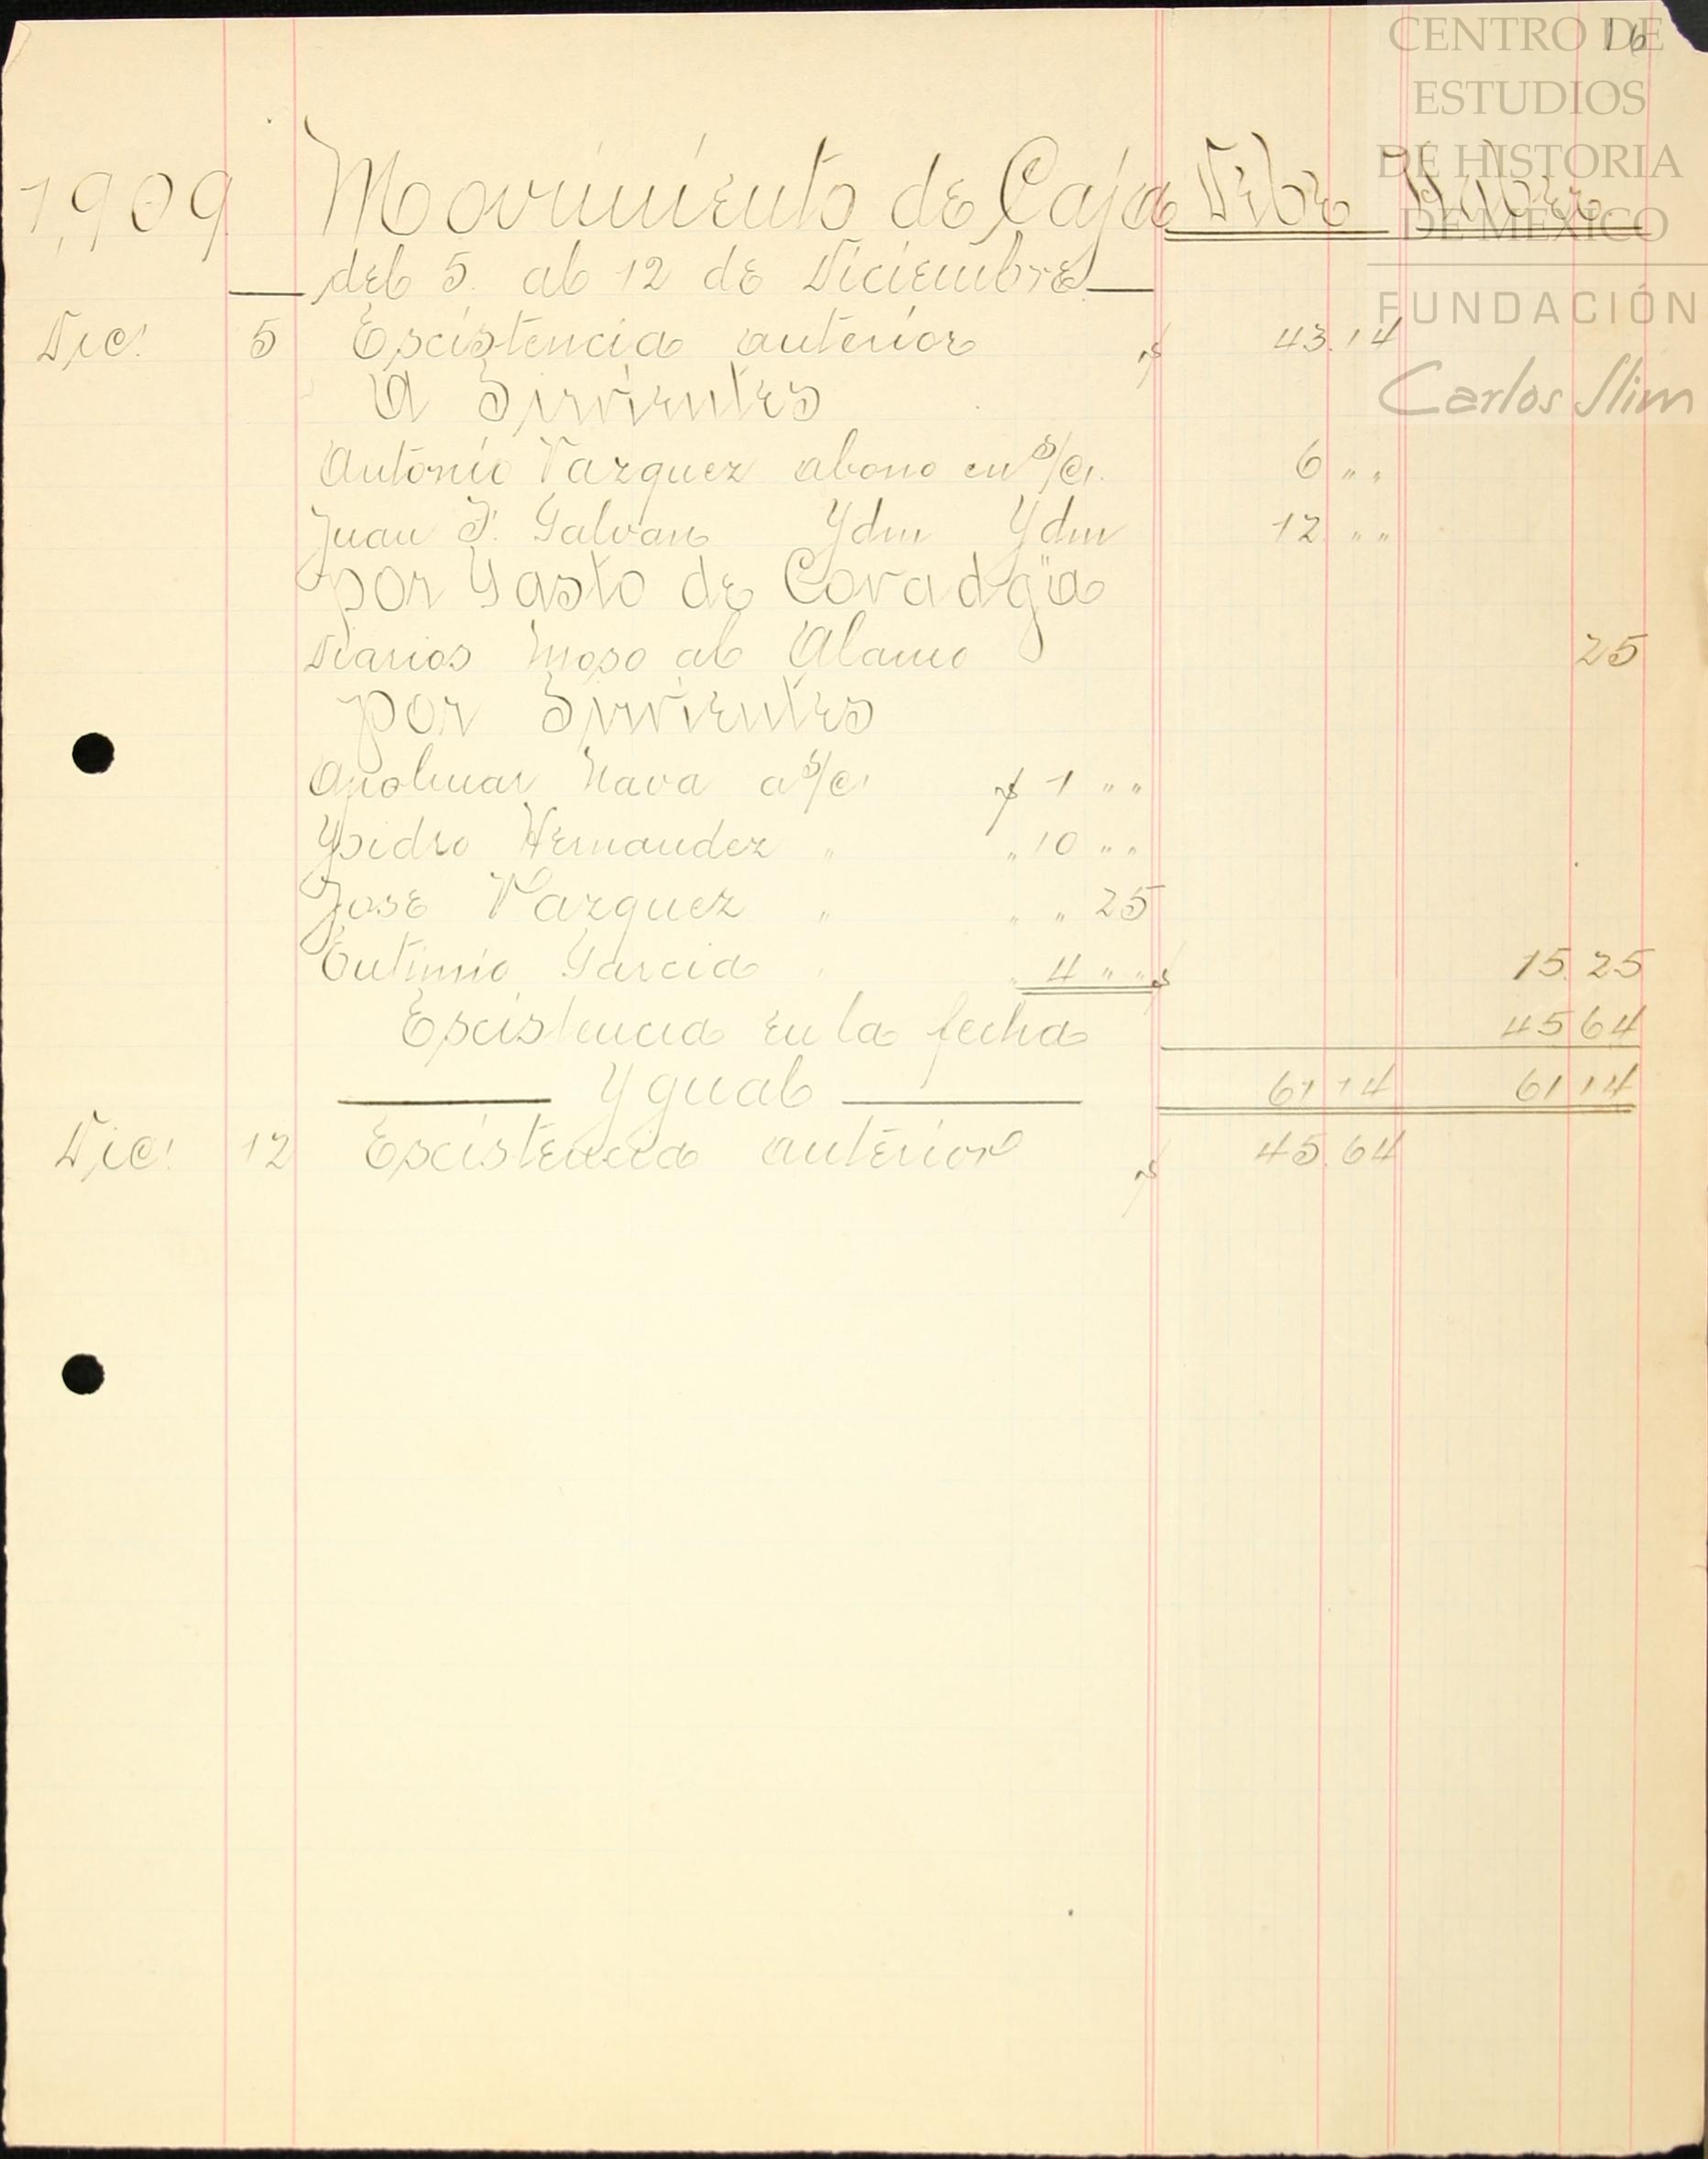 16
CENTRO DE
ESTUDIOS
DE HISTORIA
DE MÉXICO
FUNDACIÓN
Carlos Slim
1,909 Movimiento de Caja Debe Haber.
del 5. al 12 de Diciembre
Dic! 5 Escistencia anterior $ 43.14
A Sirvientes
Antonio Vazquez abono en s/c. 6 " "
Juan F. Galvan Ydm Ydm 12 " "
por Gasto de Covadgªa
Diarios moso al Alamo 25
por Sirvientes
Apolinar Nava a s/c. $ 1 " "
Ysidro Hernandez " " 10 " "
Jose Vazquez " " " 25
Eutimio Garcia " " 4 " " $ 15.25
Escistencia en la fecha 45 64
Ygual 61 14 61 14
Dic! 12 Escistencia anterior $ 45.64